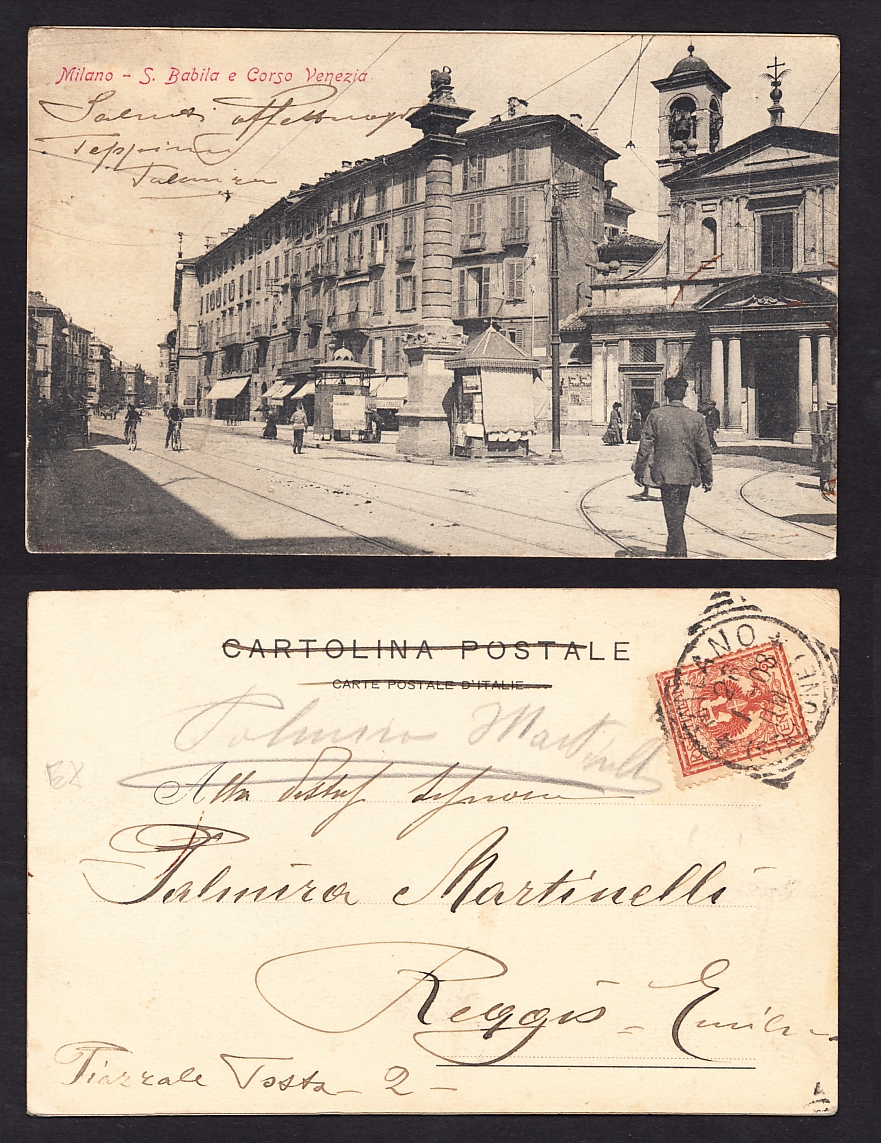 Milano - S. Babila e Corso Venezia
Saluti affettuosi
CARTOLINA POSTALE
CARTE POSTALE D'ITALIE
MILANO
Palmira Martinelli
Alla
Signora
Palmira Martinelli
Reggio - Emilia
Piazzale Tosta - 2 -